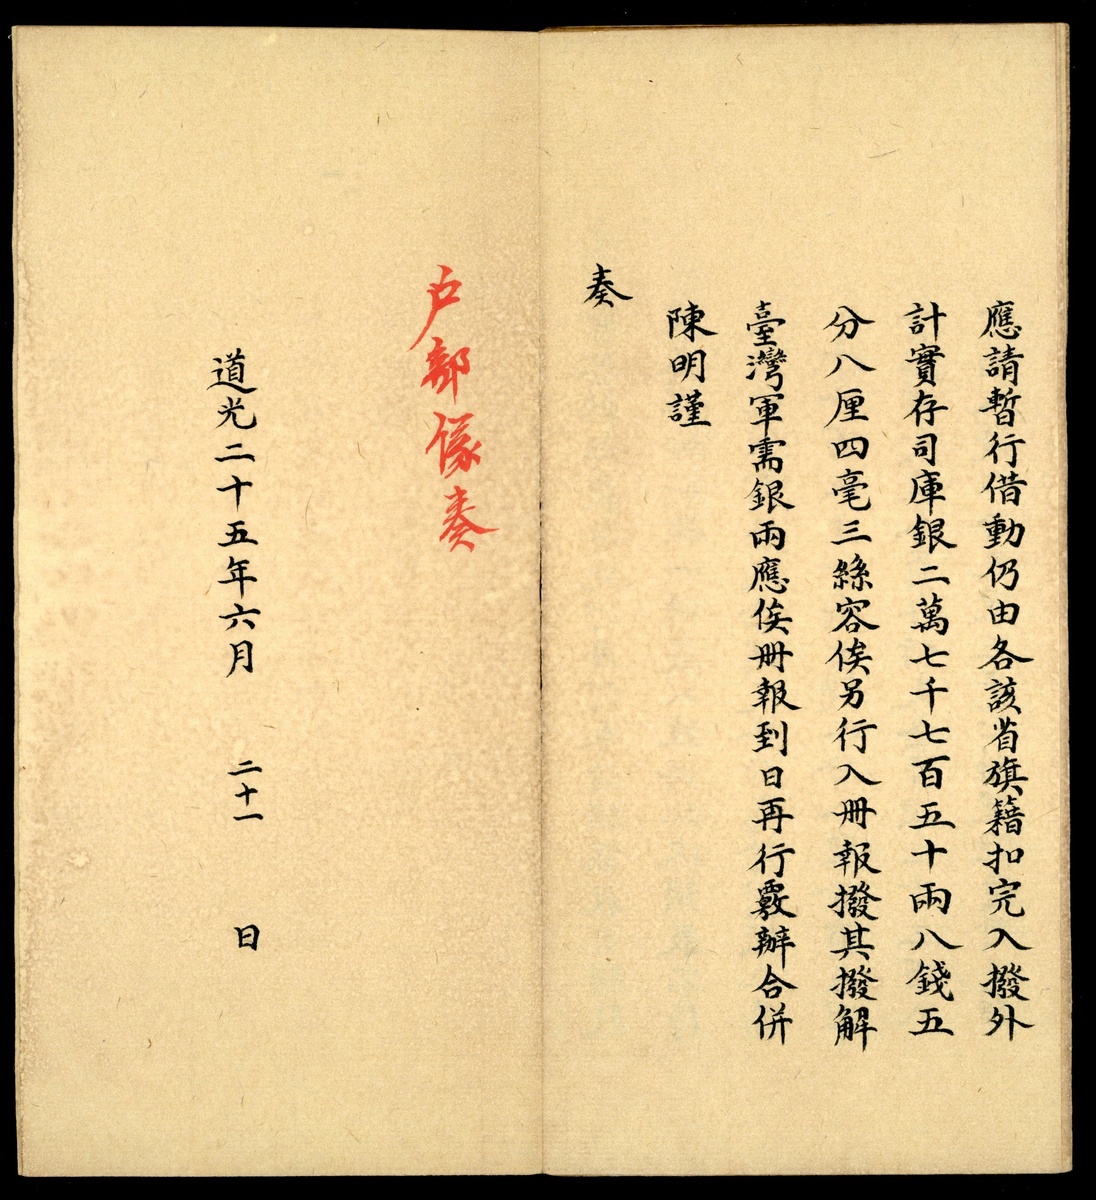 應請暫行借動仍由各該省旗籍扣完入撥外
計實存司庫銀二萬七千七百五十兩八錢五
分八厘四毫三絲容俟另行入冊報撥其撥解
臺灣軍需銀兩應俟冊報到日再行覈辦合併
陳明謹
奏
戶部議奏
道光二十五年六月二十一日